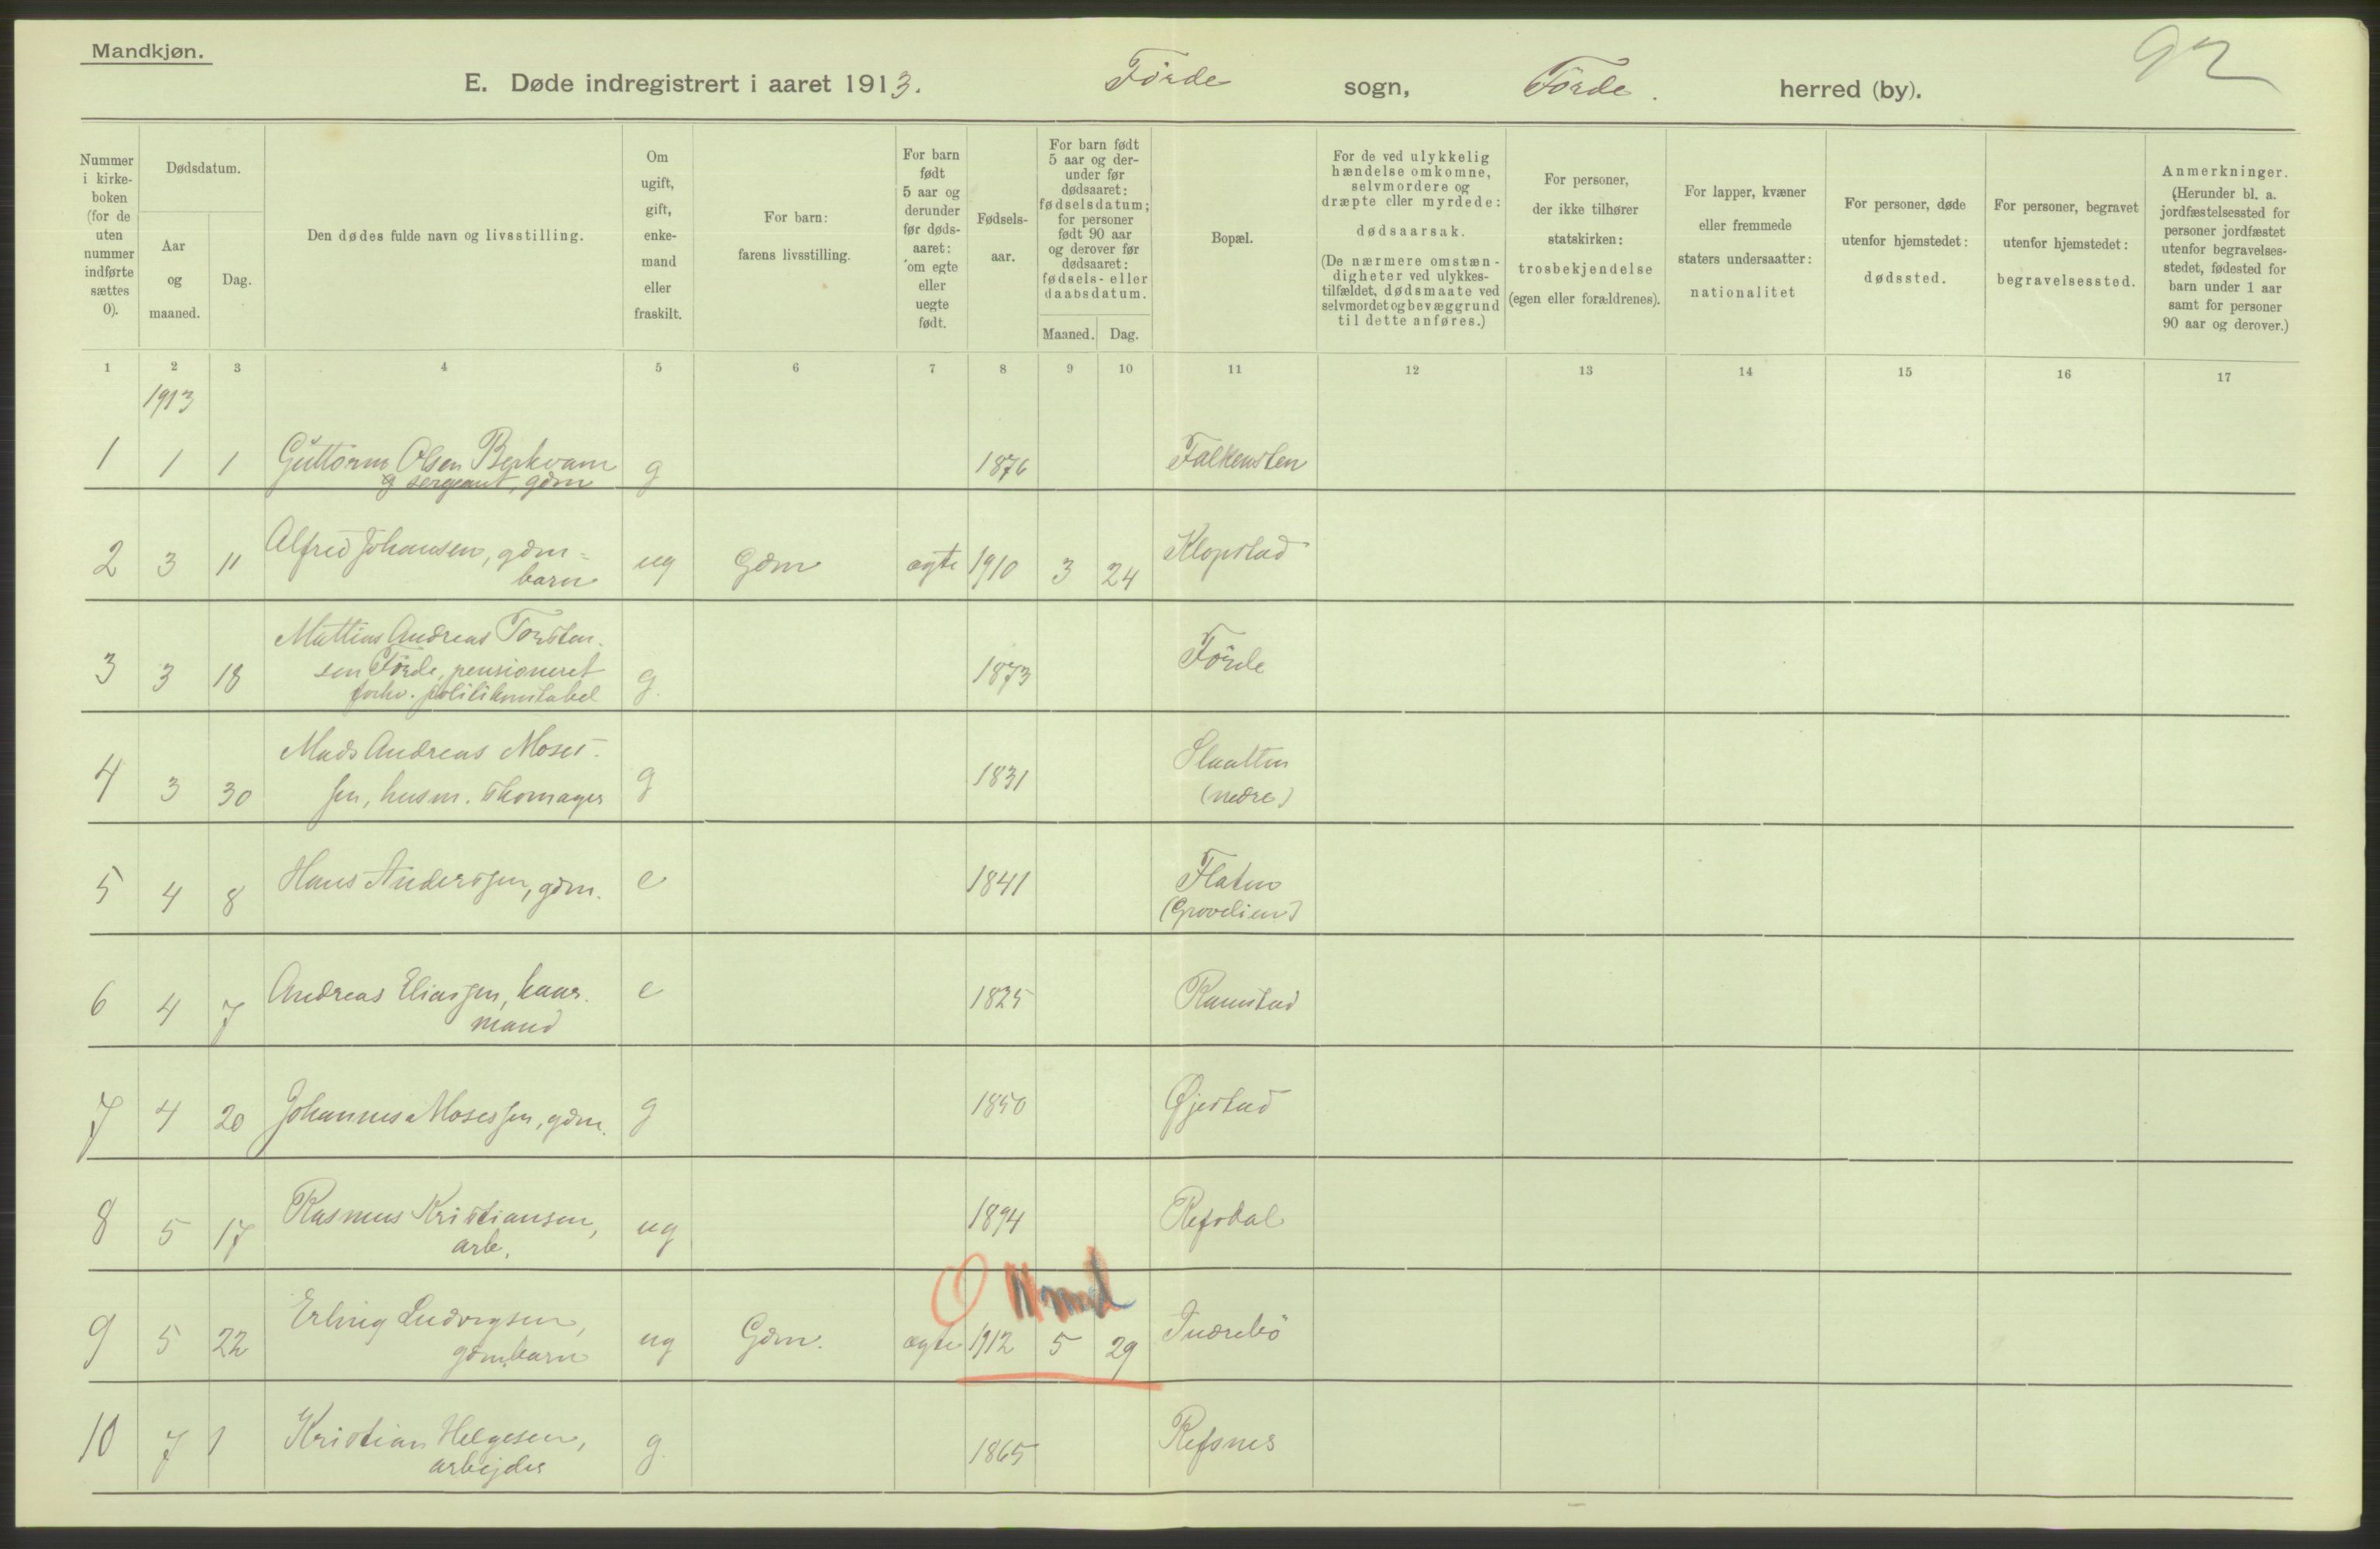 Mandkjøn.
92
E. Døde indregistrert i aaret 1913. Förde sogn, Förde. herred (by).
Nummer i kirkeboken (for de uten nummer indførte sættes 0).
Dødsdatum.
Aar og maaned.
Dag.
Den dødes fulde navn og livsstilling.
Om ugift, gift, enkemand eller fraskilt.
For barn: farens livsstilling.
For barn født 5 aar og derunder før dødsaaret: om egte eller uegte født.
Fødselsaar.
For barn født 5 aar og derunder før dødsaaret: fødselsdatum; for personer født 90 aar og derover før dødsaaret: fødsels- eller daabsdatum.
Maaned.
Dag.
Bopæl.
For de ved ulykkelig hændelse omkomne, selvmordere og dræpte eller myrdede: dødsaarsak. (De nærmere omstændigheter ved ulykkestilfældet, dødsmaate ved selvmordet og bevæggrund til dette anføres.)
For personer, der ikke tilhører statskirken: trosbekjendelse (egen eller forældrenes).
For lapper, kvæner eller fremmede staters undersaatter: nationalitet
For personer, døde utenfor hjemstedet: dødssted.
For personer, begravet utenfor hjemstedet: begravelsessted.
Anmerkninger. (Herunder bl. a. jordfæstelsessted for personer jordfæstet utenfor begravelsesstedet, fødested for barn under 1 aar samt for personer 90 aar og derover.)
1 2 3 4 5 6 7 8 9 10 11 12 13 14 15 16 17
1913
1 1 1 Guttorm Olsen Berkvam g 1876 Falkensten
sergeant, gdm
2 3 11 Alfred Johansen, gdm- ug Gdm ægte 1910 3 24 Klopstad
barn
3 3 18 Mattias Andreas Torsten- g. 1873 Förde
sen Förde, pensioneret
forhv. politikonstabel
4 3 30 Mads Andreas Moses- g 1831 Slaatten
sen, husm. skomager (nedre)
5 4 8 Hans Anderssen, gdm. e 1841 Flaten
(Grovelien)
6 4 7 Andreas Eliassen, kaar- e 1825 Ramstad
mand
7 4 20 Johannes Mosessen, gdm. g 1850 Øjestad
8 5 17 Rasmus Kristiansen, ug 1894 Refsdal
arb.
9 5 22 Erling Ludvigsen, ug Gdm. ægte 1912 5 29 Indrebö
gdm.barn
10 7 1 Kristian Helgesen, g. 1865 Refsnes
arbejder